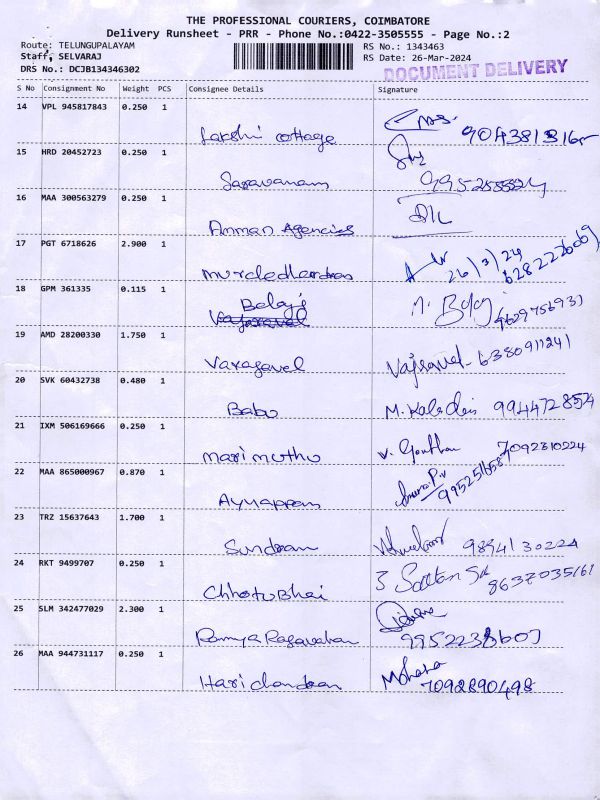 THE PROFESSIONAL COURIERS, COIMBATORE
Delivery Runsheet - PRR - Phone No.:0422-3505555 - Page No.:2
Route: TELUNGUPALAYAM RS No.: 1343463
Staff, SELVARAJ RS Date: 26-Mar-2024
DRS No.: DCJB134346302 DOCUMENT DELIVERY
S No Consignment No Weight PCS Consignee Details Signature
14 VPL 945817843 0.250 1
Lakshi cottage
15 HRD 20452723 0.250 1
Saravanam
16 MAA 300563279 0.250 1
Amman Agencies
17 PGT 6718626 2.900 1
26/3/24
18 GPM 361335 0.115 1
Balaji M. Balaj
19 AMD 28200330 1.750 1
Varagavel Vajravel 6380911241
20 SVK 60432738 0.480 1
Babu 9944728524
21 IXM 506169666 0.250 1
Marimuthu V. Gowtham 7092810224
22 MAA 865000967 0.870 1
Ayyappan
23 TRZ 15637643 1.700 1
Sundram 9894130224
24 RKT 9499707 0.250 1
Chhotu Bhai 8637035161
25 SLM 342477029 2.300 1
Ramya
26 MAA 944731117 0.250 1
Harichandran Mohana
7092890498